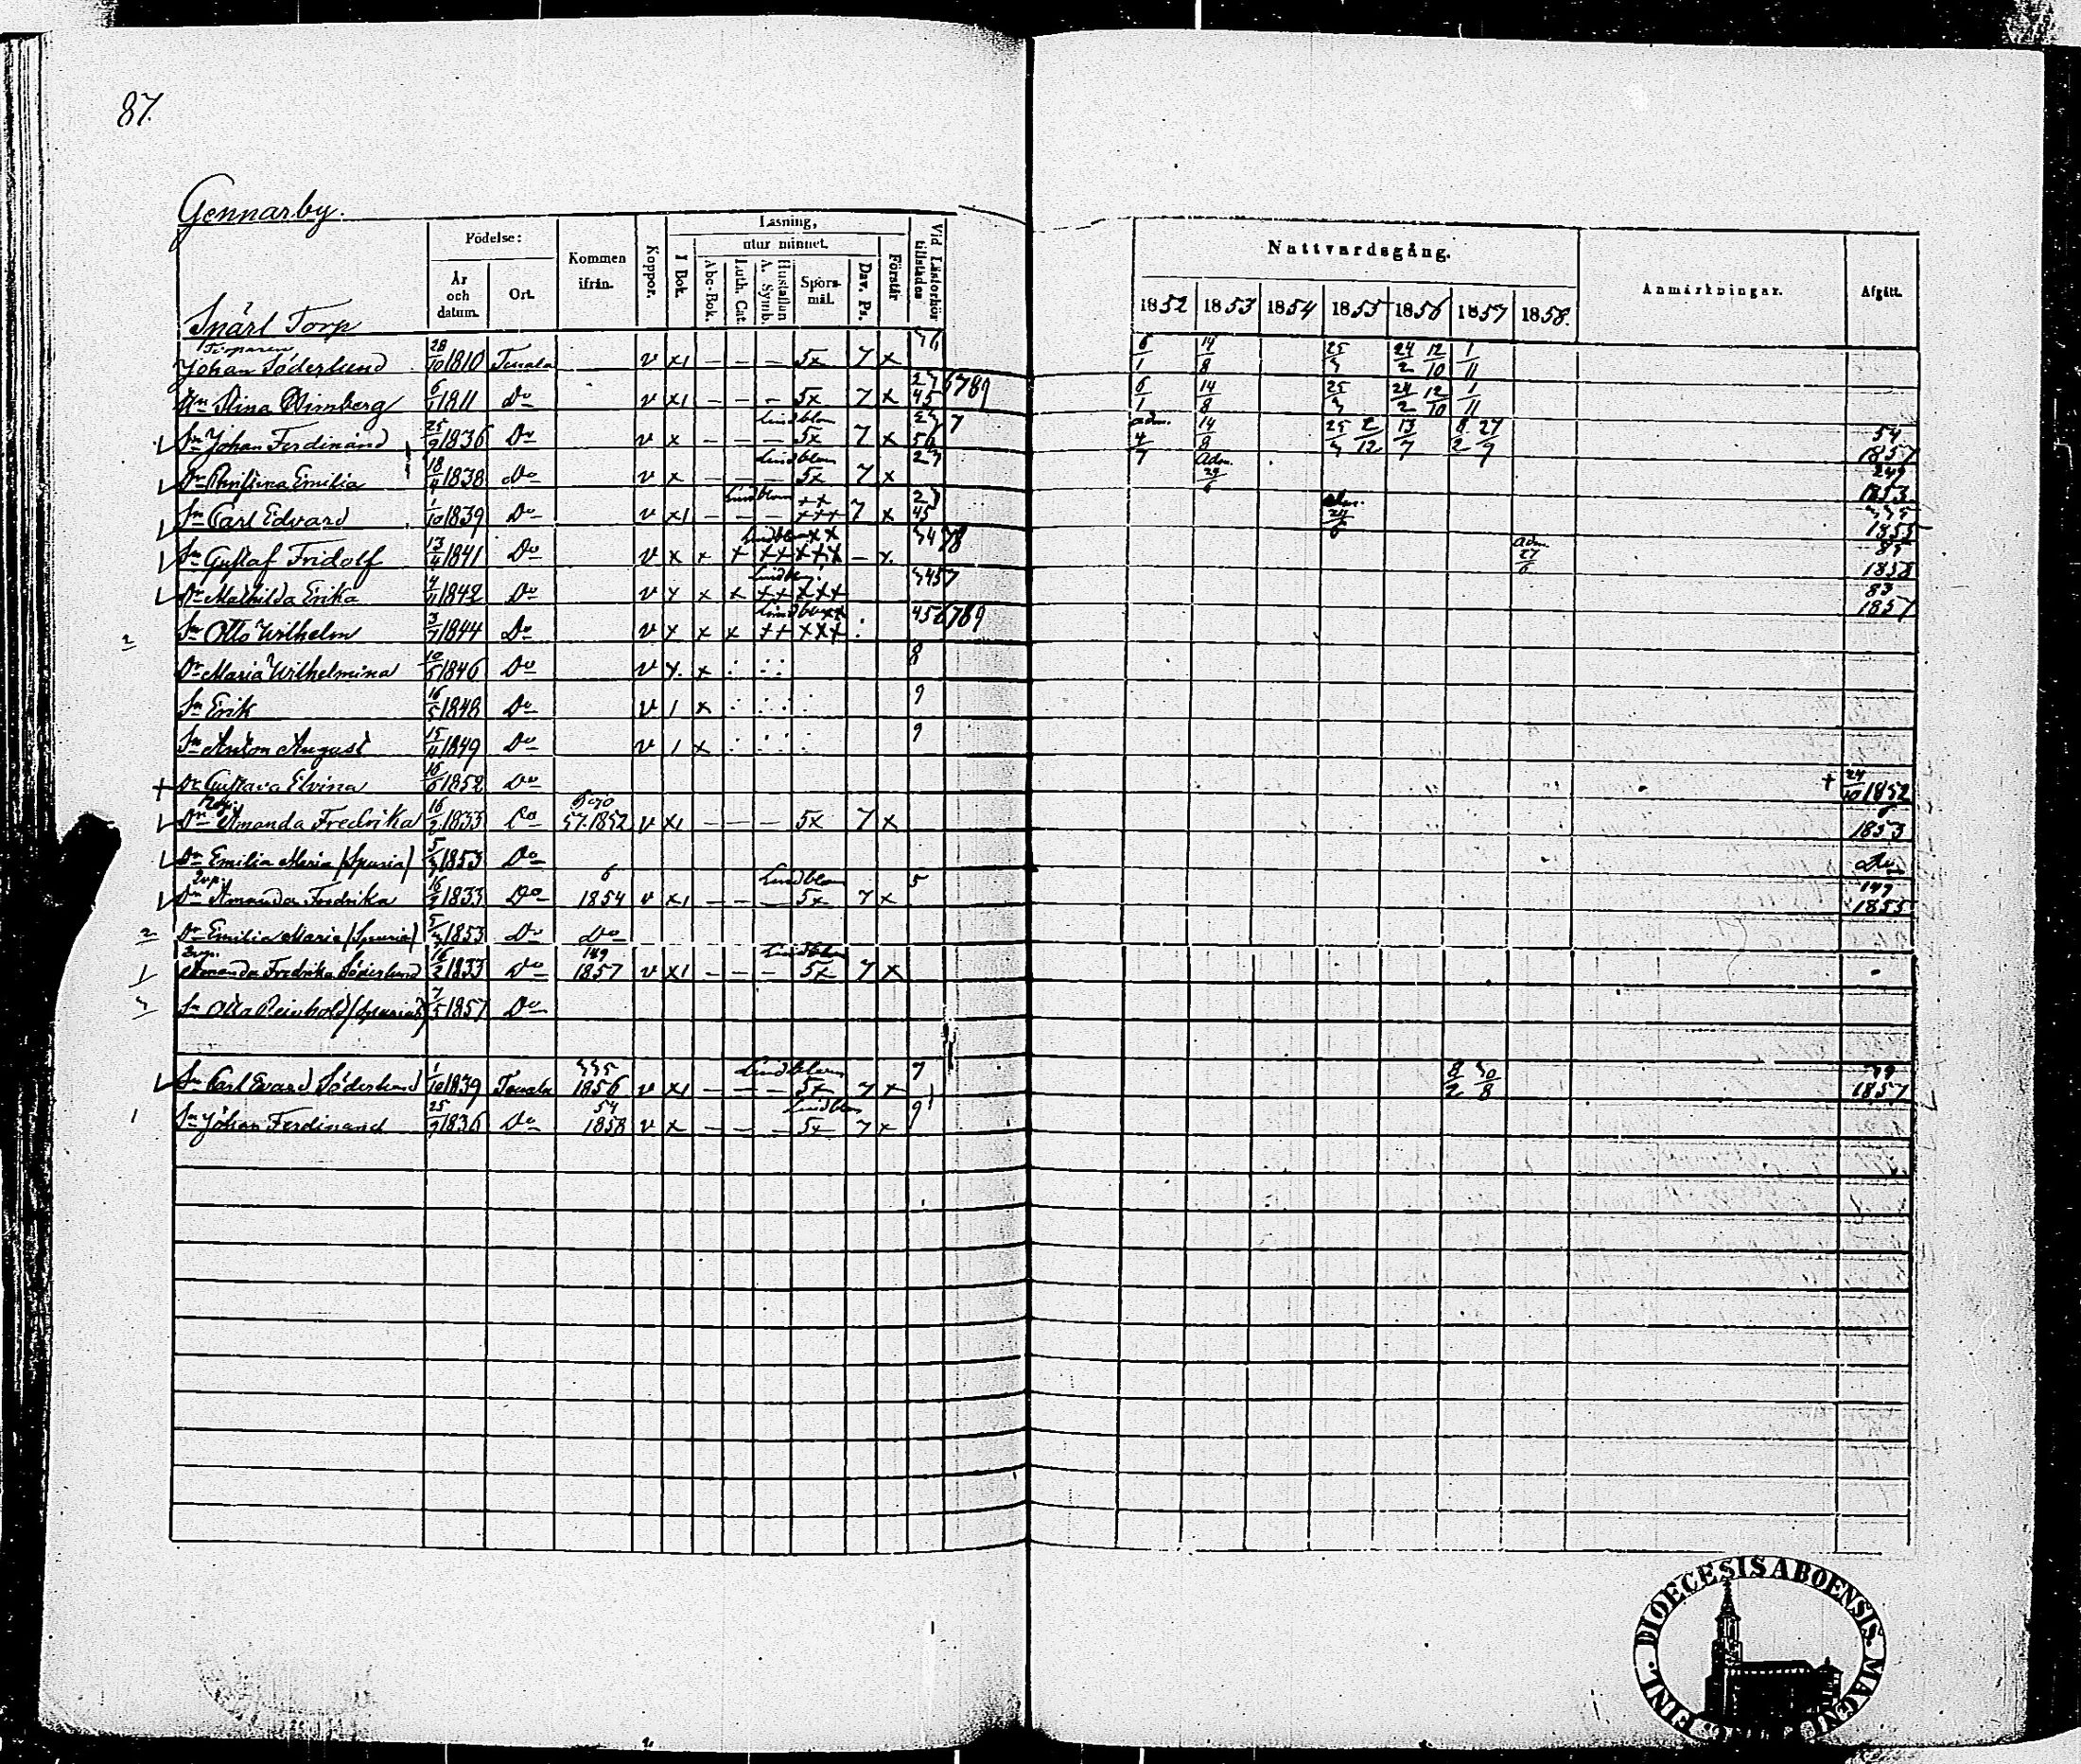 87.
Gennarby.
Födelse:
År och datum.
Ort.
Kommen ifrån.
Koppor.
Läsning,
I Bok.
utur minnet.
Abc-Bok.
Luth. Cat.
Hustaflan A. Symb.
Spörsmål.
Dav. Ps.
Förstår
Vid Läsförhör tillstädes
Nattvardsgång.
1852 1853 1854 1855 1856 1857 1858.
Anmärkningar.
Afgått.
Torp
Torparen
Johan Söderlund 28/10 1810 Tenala v x1 – – – 5x 7 x 6/1 14/8 25/3 24/2 12/10 1/11
Stina 6/1 1811 Do v x1 – – – 5x 7 x 6/1 14/8 25/3 24/2 12/10 1/11
Sn Johan Ferdinand 25/9 1836 Do v x – – – Lindblom 5x 7 x adm. 4/7 14/8 25/3 2/12 13/7 8/2 27/9 54 1857
Dr Christina Emilia 18/4 1838 Do v x – – – Lindblom 5x 7 x Adm. 29/6 249 1853
Sn Carl Edvard 1/10 1839 Do v x1 – – – Lindblom 7 x 335 1855
Sn Gustaf Fridolf 13/4 1841 Do v x x x Lindblom – x Adm. 27/6 85 1858
Dr Mathilda Erika 4/11 1842 Do v x x x Lindblom 3457 83 1857
Sn Otto Wilhelm 3/7 1844 Do v x x x Lindblom 456789
Dr Maria Wilhelmina 10/5 1846 Do v x x 8
Sn Erik 16/5 1848 Do v 1 x 9
Sn Anton August 15/11 1849 Do v 1 x 9
+ Dr Gustava Elvina 16/6 1852 Do + 24/10 1852
Dr Amanda Fredrika 16/2 1833 Do 57.1852 v x1 – – – 5x 7 x 1853
Dr Emilia Maria (Spuria) 5/3 1853 Do Do
Dr Amanda Fredrika 16/2 1833 Do 6 1854 v x1 – – – Lindblom 5x 7 x 5 149 1855
Dr Emilia Maria (Spuria) 5/3 1853 Do Do
Amanda Fredrika Söderlund 16/2 1833 Do 149 1857 v x1 – – – Lindblom 5x 7 x
Sn Otto Reinhold (Spurius) 7/5 1857 Do
Sn Carl Evard Söderlund 1/10 1839 Tenala 335 1856 v x1 – – – Lindblom 5x 7 x 7 8/2 30/8 1857
Sn Johan Ferdinand 25/9 1836 Do 54 1858 v x – – – Lindblom 5x 7 x 9
DIOECESIS ABOENSIS. MAGNI. FINL.